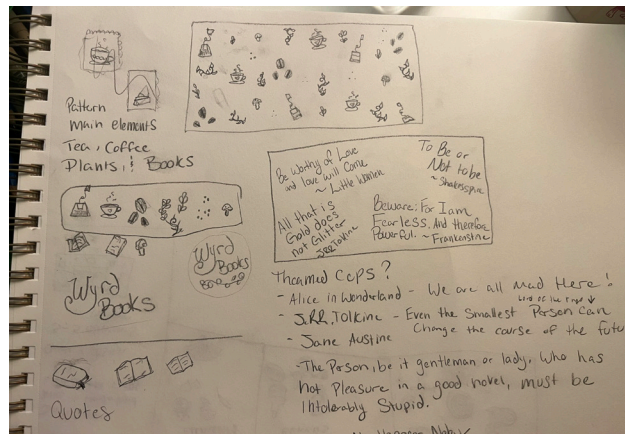 Pattern
main elements
Tea, Coffee
Plants, & Books
Be worthy of Love
and love will Come
~ Little Women
To Be or
Not to be
~Shakesspire
All that is
Gold does
not Glitter
~JRR Tolkine
Beware; For I am
Fearless, And therefore
Powerful. ~ Frankenstine
Wyrd
Books
Wyrd
Books
Theamed Cups?
- Alice in Wonderland - We are all Mad Here!
Lord of the Rings ↓
- J.R.R. Tolkine - Even the Smallest Person Can
Change the course of the futu
- Jane Austine
- The Person, be it gentleman or lady, who has
not Pleasure in a good novel, must be
Intolerably Stupid.
Quotes